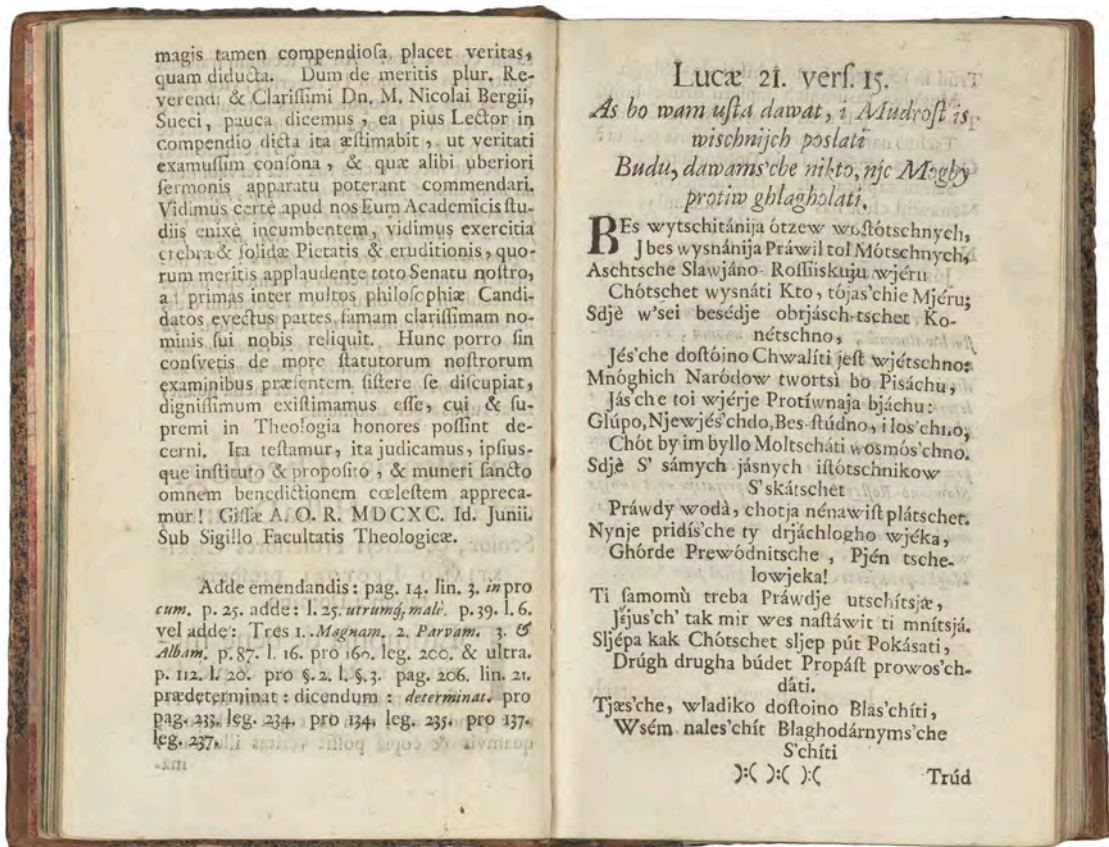 magis tamen compendioſa, placet veritas,
quam diducta. Dum de meritis plur. Re-
verendi & Clariſſimi Dn. M. Nicolai Bergii,
Sueci, pauca dicemus, ea pius Lector in
compendio dicta ita æſtimabit, ut veritati
examuſſim conſona, & quæ alibi uberiori
ſermonis apparatu poterant commendari.
Vidimus certè apud nos Eum Academicis ſtu-
diis enixè incumbentem, vidimus exercitia
crebra & ſolidæ Pietatis & eruditionis, quo-
rum meritis applaudente toto Senatu noſtro,
ad primas inter multos philoſophiæ Candi-
datos evectus partes, famam clariſſimam no-
minis ſui nobis reliquit. Hunc porro ſin
conſvetis de more ſtatutorum noſtrorum
examinibus præſentem ſiſtere ſe diſcupiat,
digniſſimum exiſtimamus eſſe, cui & ſu-
premi in Theologia honores poſſint de-
cerni. Ita teſtamur, ita judicamus, ipſius-
que inſtituto & propoſito, & muneri ſancto
omnem benedictionem cœleſtem appreca-
mur! Giſſæ A. O. R. MDCXC. Id. Junii.
Sub Sigillo Facultatis Theologicæ.
Adde emendandis: pag. 14. lin. 3. in pro
cum. p. 25. adde: l. 25. utrumq; malè. p. 39. l. 6.
vel adde: Tres 1. Magnam. 2. Parvam. 3. &
Albam. p. 87. l. 16. pro 160. leg. 200. & ultra.
p. 112. l. 20. pro §. 2. l. §. 3. pag. 206. lin. 21.
prædeterminat: dicendum: determinat. pro
pag. 233. leg. 234. pro 134. leg. 235. pro 137.
leg. 237.
Lucæ 21. verſ. 15.
As bo wam uſta dawat, i Mudroſt is
wischnijch poslati
Budu, dawams'che nikto, njc Mogby
protiw ghlagholati.
BEs wytschitánija ótzew woſtótschnych,
J bes wysnánija Práwil tol Mótschnych,
Aschtsche Slawjáno-Roſſiiskuju wjéru
Chótschet wysnáti Kto, tójas'chie Mjéru;
Sdjè w'sei besédje obrjásch-tschet Ko-
nétschno,
Jés'che doſtóino Chwalíti jeſt wjétschno:
Mnóghich Naródow twortsi bo Pisáchu,
Jás'che toi wjérje Protíwnaja bjáchu:
Glúpo, Njewjés'chdo, Bes-ſtúdno, i los'chno,
Chót by im byllo Moltscháti wosmós'chno.
Sdjè S' sámych jásnych iſtótschnikow
S'skátschet
Práwdy wodà, chotja nénawiſt plátschet.
Nynje pridís'che ty drjáchlogho wjéka,
Ghórde Prewódnitsche, Pjén tsche-
lowjeka!
Ti ſamomù treba Práwdje utschítsjæ,
Jéjus'ch' tak mir wes naſtáwit ti mnítsjá.
Sljépa kak Chótschet sljep pút Pokásati,
Drúgh drugha búdet Propáſt prowos'ch-
dáti.
Tjæs'che, wladiko doſtoino Blas'chíti,
Wsém nales'chít Blaghodárnyms'che
S'chíti
):( ):( ):( Trúd